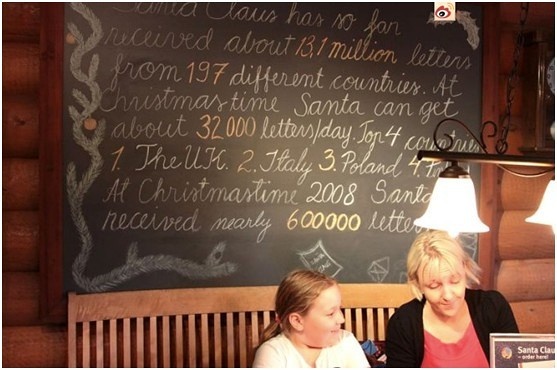 Santa Claus has so far
received about 13,1 million letters
from 197 different countries. At
Christmastime Santa can get
about 32000 letters/day. Top 4 countries
1. The U.K. 2. Italy 3. Poland 4.
At Christmastime 2008 Santa
received nearly 600000
Santa Clau
– order here!